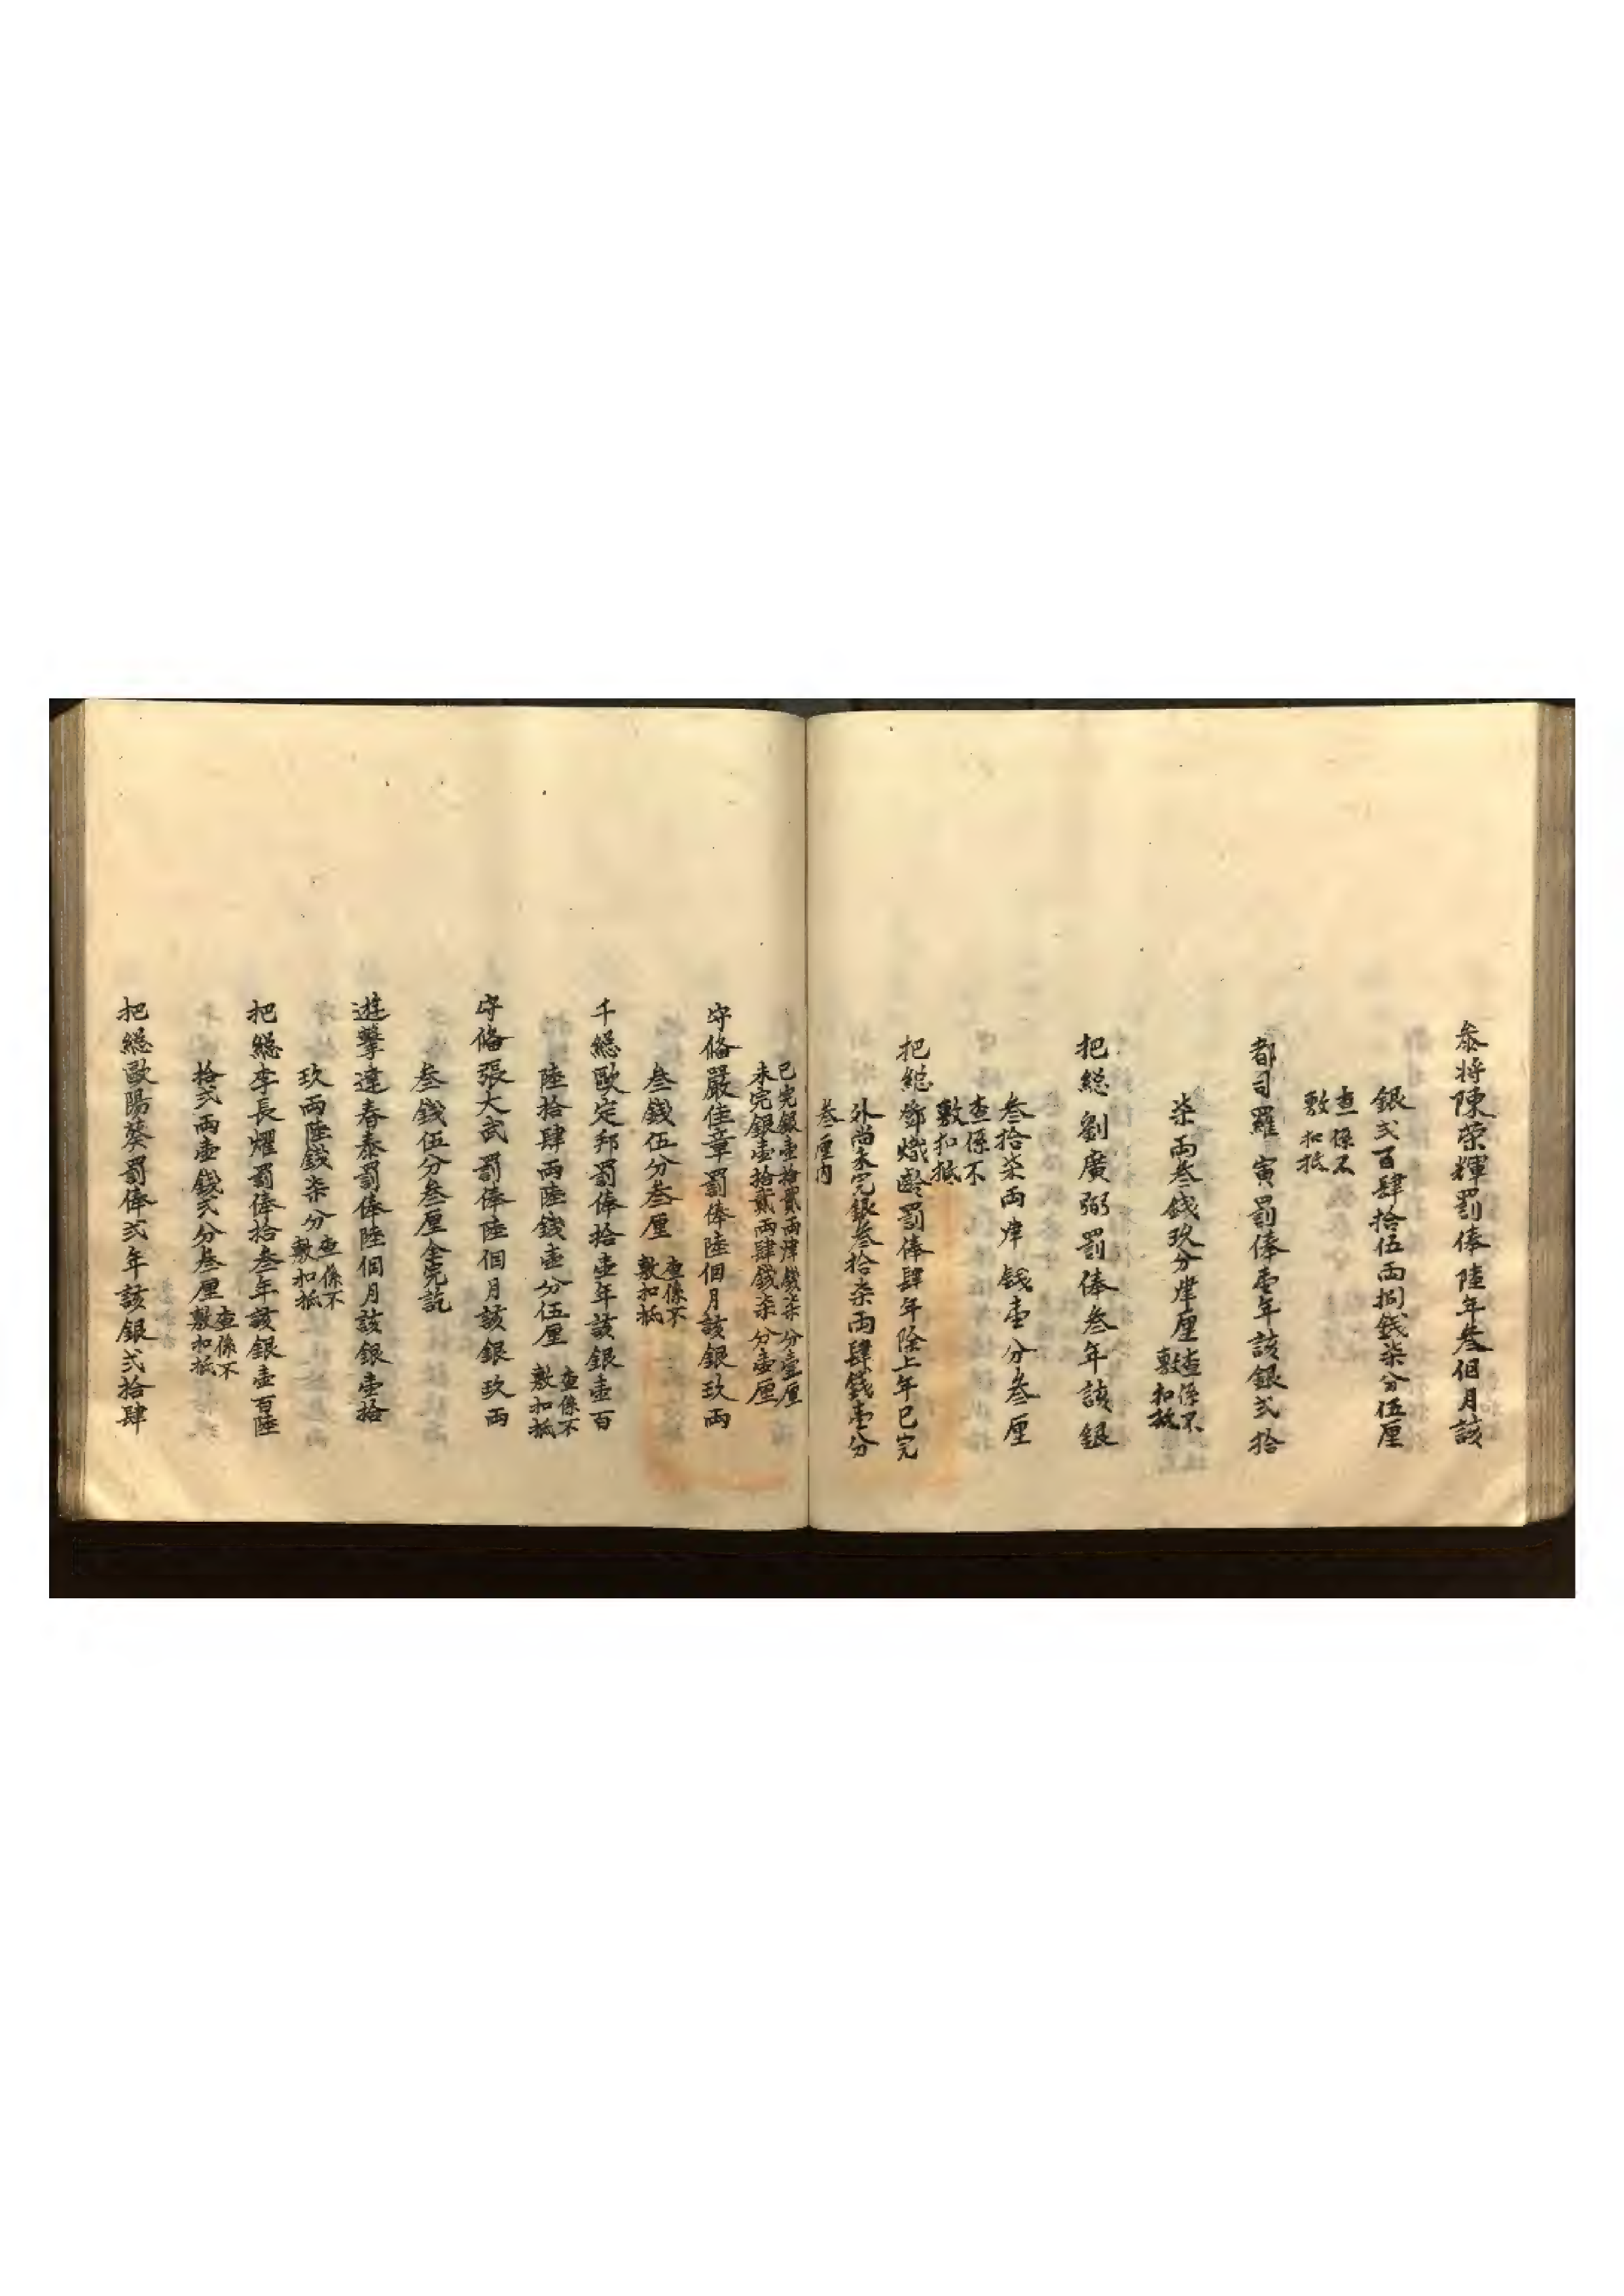 叅将陳榮輝罰俸陸年叁個月該
銀弍百肆拾伍両捌錢柒分伍厘
查係不
敷扣抵
都司羅寅罰俸壹年該銀弍拾
柒両叁錢玖分肆厘
查係不
敷扣抵
把総劉廣弼罰俸叁年該銀
叁拾柒両肆錢壹分叁厘
查係不
敷扣抵
把総鄧熾齡罰俸肆年除上年已完
外尚未完銀叁拾柒両肆錢壹分
叁厘内
已完銀壹拾貳両肆錢柒分壹厘
未完銀壹拾貳両肆錢柒分壹厘
守俻嚴佳章罰俸陸個月該銀玖両
叁錢伍分叁厘
查係不
敷扣抵
千総歐定邦罰俸拾壹年該銀壹百
陸拾肆両陸錢壹分伍厘
查係不
敷扣抵
守俻張大武罰俸陸個月該銀玖両
叁錢伍分叁厘全完訖
遊擊達春泰罰俸陸個月該銀壹拾
玖両陸錢柒分
查係不
敷扣抵
把総李長燿罰俸拾叁年該銀壹百陸
拾弍両壹錢弍分叁厘
查係不
敷扣抵
把総歐陽葵罰俸弍年該銀弍拾肆